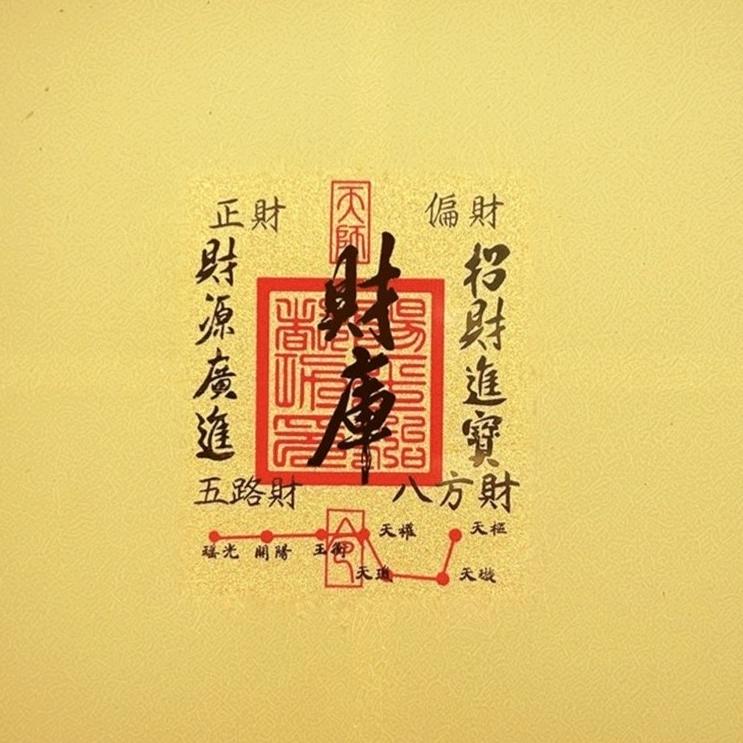 天師
正財
偏財
財庫
招財進寶
財源廣進
五路財
八方財
令
天權
天樞
瑤光
開陽
玉衡
天璣
天璇